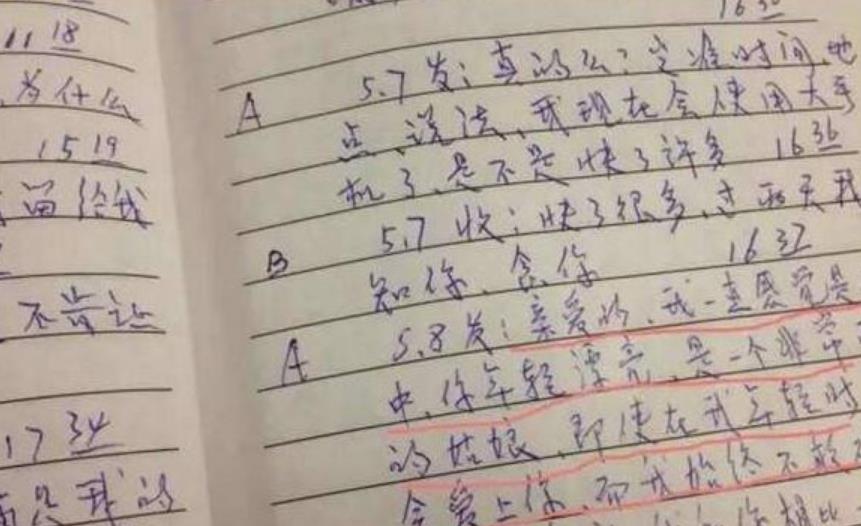 11 18
为什么
15 19
留给我
不肯让
17 34
我的
16 30
A 5.7发：真的么：定准时间、地
点、说法、我现在会使用大手
机了、是不是快了许多 16 36
B 5.7收：快了很多、过两天我
知你、念你 16 37
A 5.8发：亲爱的、我一直感觉是
中、你年轻漂亮、是一个非常
的姑娘、即使在我年轻时
会爱上你、而我始终不敢
你相比